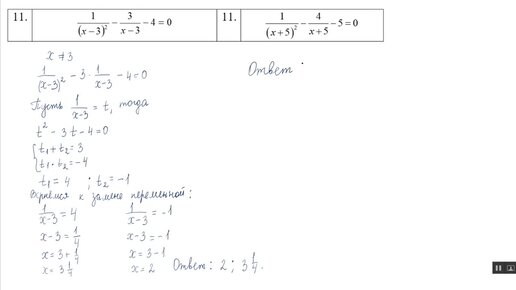 11. 1/(x−3)² − 3/(x−3) − 4 = 0 11. 1/(x+5)² − 4/(x+5) − 5 = 0
x ≠ 3
1/(x-3)² - 3 · 1/(x-3) - 4 = 0
Ответ :
Пусть 1/(x-3) = t, тогда
t² - 3t - 4 = 0
{ t₁ + t₂ = 3
{ t₁ · t₂ = -4
t₁ = 4 ; t₂ = -1
Вернемся к замене переменной:
1/(x-3) = 4 1/(x-3) = -1
x-3 = 1/4 x-3 = -1
x = 3 + 1/4 x = 3-1
x = 3 1/4 x = 2 Ответ: 2 ; 3 1/4.